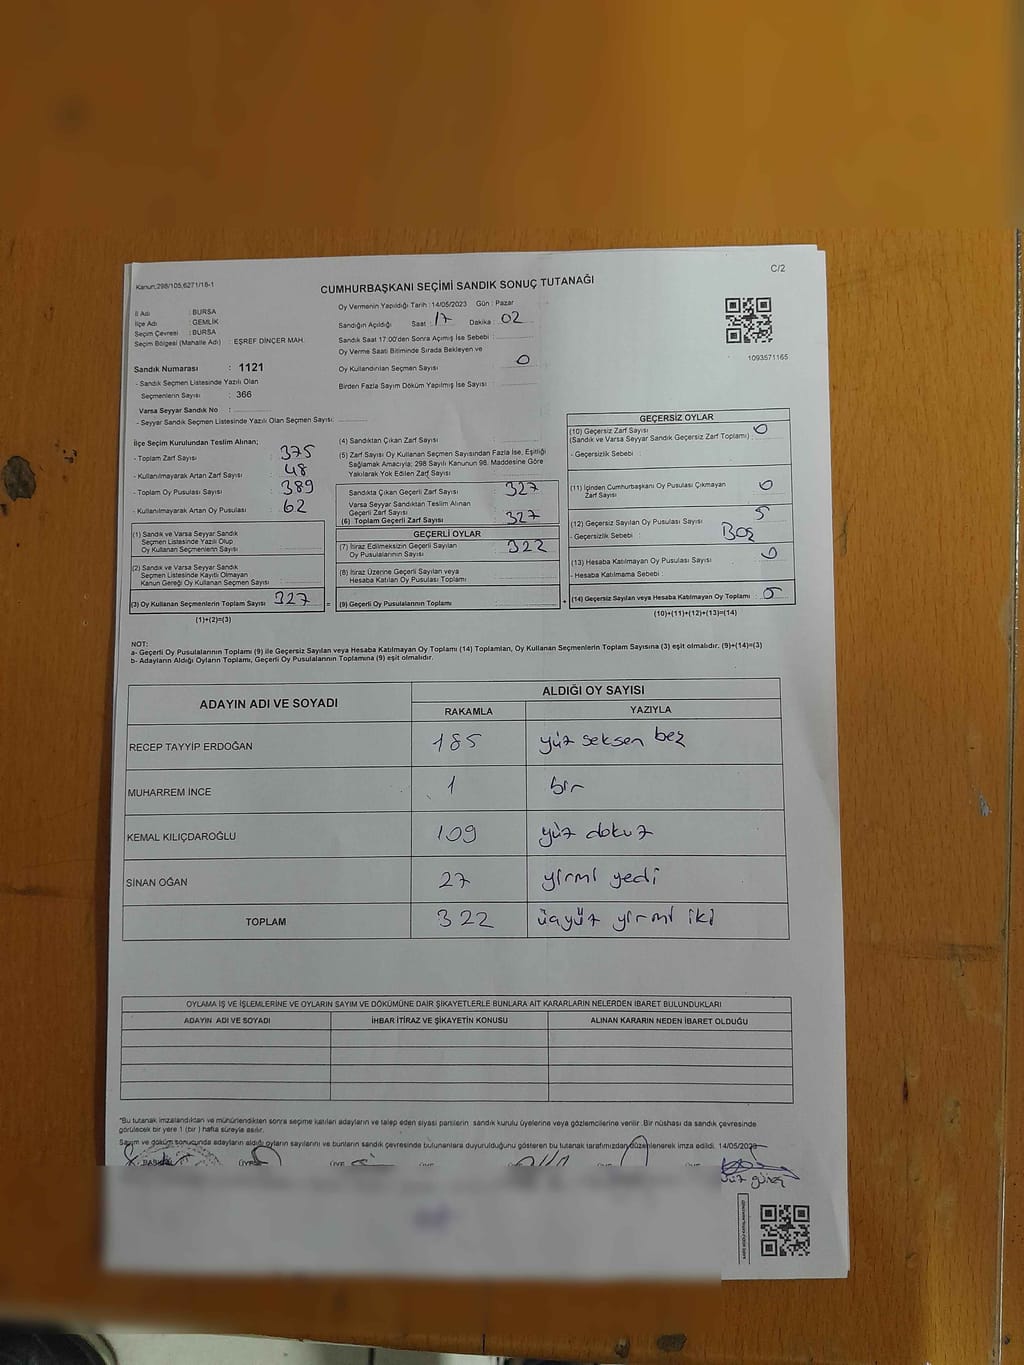 Kanun;298/105,6271/18-1
C/2
CUMHURBAŞKANI SEÇİMİ SANDIK SONUÇ TUTANAĞI
İl Adı : BURSA
İlçe Adı : GEMLİK
Seçim Çevresi : BURSA
Seçim Bölgesi (Mahalle Adı) : EŞREF DİNÇER MAH.
Sandık Numarası : 1121
- Sandık Seçmen Listesinde Yazılı Olan
Seçmenlerin Sayısı : 366
Varsa Seyyar Sandık No :
- Seyyar Sandık Seçmen Listesinde Yazılı Olan Seçmen Sayısı:
Oy Vermenin Yapıldığı Tarih : 14/05/2023 Gün : Pazar
Sandığın Açıldığı Saat : 17 Dakika : 02
Sandık Saat 17:00'den Sonra Açımış İse Sebebi :
Oy Verme Saati Bitiminde Sırada Bekleyen ve
Oy Kullandırılan Seçmen Sayısı : 0
Birden Fazla Sayım Döküm Yapılmış İse Sayısı :
1093571165
İlçe Seçim Kurulundan Teslim Alınan;
- Toplam Zarf Sayısı : 375
- Kullanılmayarak Artan Zarf Sayısı : 48
- Toplam Oy Pusulası Sayısı : 389
- Kullanılmayarak Artan Oy Pusulası : 62
(1) Sandık ve Varsa Seyyar Sandık
Seçmen Listesinde Yazılı Olup
Oy Kullanan Seçmenlerin Sayısı :
(2) Sandık ve Varsa Seyyar Sandık
Seçmen Listesinde Kayıtlı Olmayan
Kanun Gereği Oy Kullanan Seçmen Sayısı :
(3) Oy Kullanan Seçmenlerin Toplam Sayısı : 327 =
(1)+(2)=(3)
(4) Sandıktan Çıkan Zarf Sayısı :
(5) Zarf Sayısı Oy Kullanan Seçmen Sayısından Fazla İse, Eşitliği
Sağlamak Amacıyla; 298 Sayılı Kanunun 98. Maddesine Göre
Yakılarak Yok Edilen Zarf Sayısı :
Sandıkta Çıkan Geçerli Zarf Sayısı : 327
Varsa Seyyar Sandıktan Teslim Alınan
Geçerli Zarf Sayısı :
(6) Toplam Geçerli Zarf Sayısı : 327
GEÇERLİ OYLAR
(7) İtiraz Edilmeksizin Geçerli Sayılan
Oy Pusulalarının Sayısı : 322
(8) İtiraz Üzerine Geçerli Sayılan veya
Hesaba Katılan Oy Pusulası Toplamı :
(9) Geçerli Oy Pusulalarının Toplamı : +
GEÇERSİZ OYLAR
(10) Geçersiz Zarf Sayısı : 0
(Sandık ve Varsa Seyyar Sandık Geçersiz Zarf Toplamı)
- Geçersizlik Sebebi :
(11) İçinden Cumhurbaşkanı Oy Pusulası Çıkmayan
Zarf Sayısı : 0
(12) Geçersiz Sayılan Oy Pusulası Sayısı : 5
- Geçersizlik Sebebi : Boş
(13) Hesaba Katılmayan Oy Pusulası Sayısı : 0
- Hesaba Katılmama Sebebi :
(14) Geçersiz Sayılan veya Hesaba Katılmayan Oy Toplamı : 5
(10)+(11)+(12)+(13)=(14)
NOT:
a- Geçerli Oy Pusulalarının Toplamı (9) ile Geçersiz Sayılan veya Hesaba Katılmayan Oy Toplamı (14) Toplamları, Oy Kullanan Seçmenlerin Toplam Sayısına (3) eşit olmalıdır. (9)+(14)=(3)
b- Adayların Aldığı Oyların Toplamı, Geçerli Oy Pusulalarının Toplamına (9) eşit olmalıdır.
ADAYIN ADI VE SOYADI
ALDIĞI OY SAYISI
RAKAMLA YAZIYLA
RECEP TAYYİP ERDOĞAN 185 yüz seksen beş
MUHARREM İNCE 1 bir
KEMAL KILIÇDAROĞLU 109 yüz dokuz
SİNAN OĞAN 27 yirmi yedi
TOPLAM 322 üçyüz yirmi iki
OYLAMA İŞ VE İŞLEMLERİNE VE OYLARIN SAYIM VE DÖKÜMÜNE DAİR ŞİKAYETLERLE BUNLARA AİT KARARLARIN NELERDEN İBARET BULUNDUKLARI
ADAYIN ADI VE SOYADI İHBAR İTİRAZ VE ŞİKAYETİN KONUSU ALINAN KARARIN NEDEN İBARET OLDUĞU
*Bu tutanak imzalandıktan ve mühürlendikten sonra seçime katılan adayların ve talep eden siyasi partilerin sandık kurulu üyelerine veya gözlemcilerine verilir. Bir nüshası da sandık çevresinde
görülecek bir yere 1 (bir ) hafta süreyle asılır.
Sayım ve döküm sonucunda adayların aldığı oyların sayılarını ve bunların sandık çevresinde bulunanlara duyurulduğunu gösteren bu tutanak tarafımızdan düzenlenerek imza edildi. 14/05/2023
BAŞKAN ÜYE ÜYE